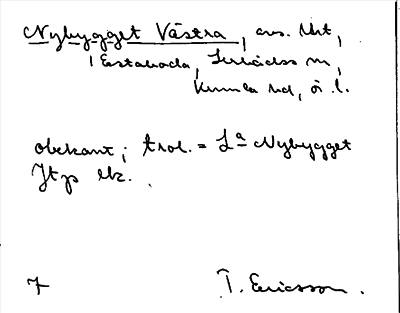 Nybygget Västra, avs. Urt,
1 Eartaboda, Lerbäcks sn,
Kumla hd, ö. l.
obekant; trol. = La Nybygget
Jtp Ek.
7
T. Ericsson.